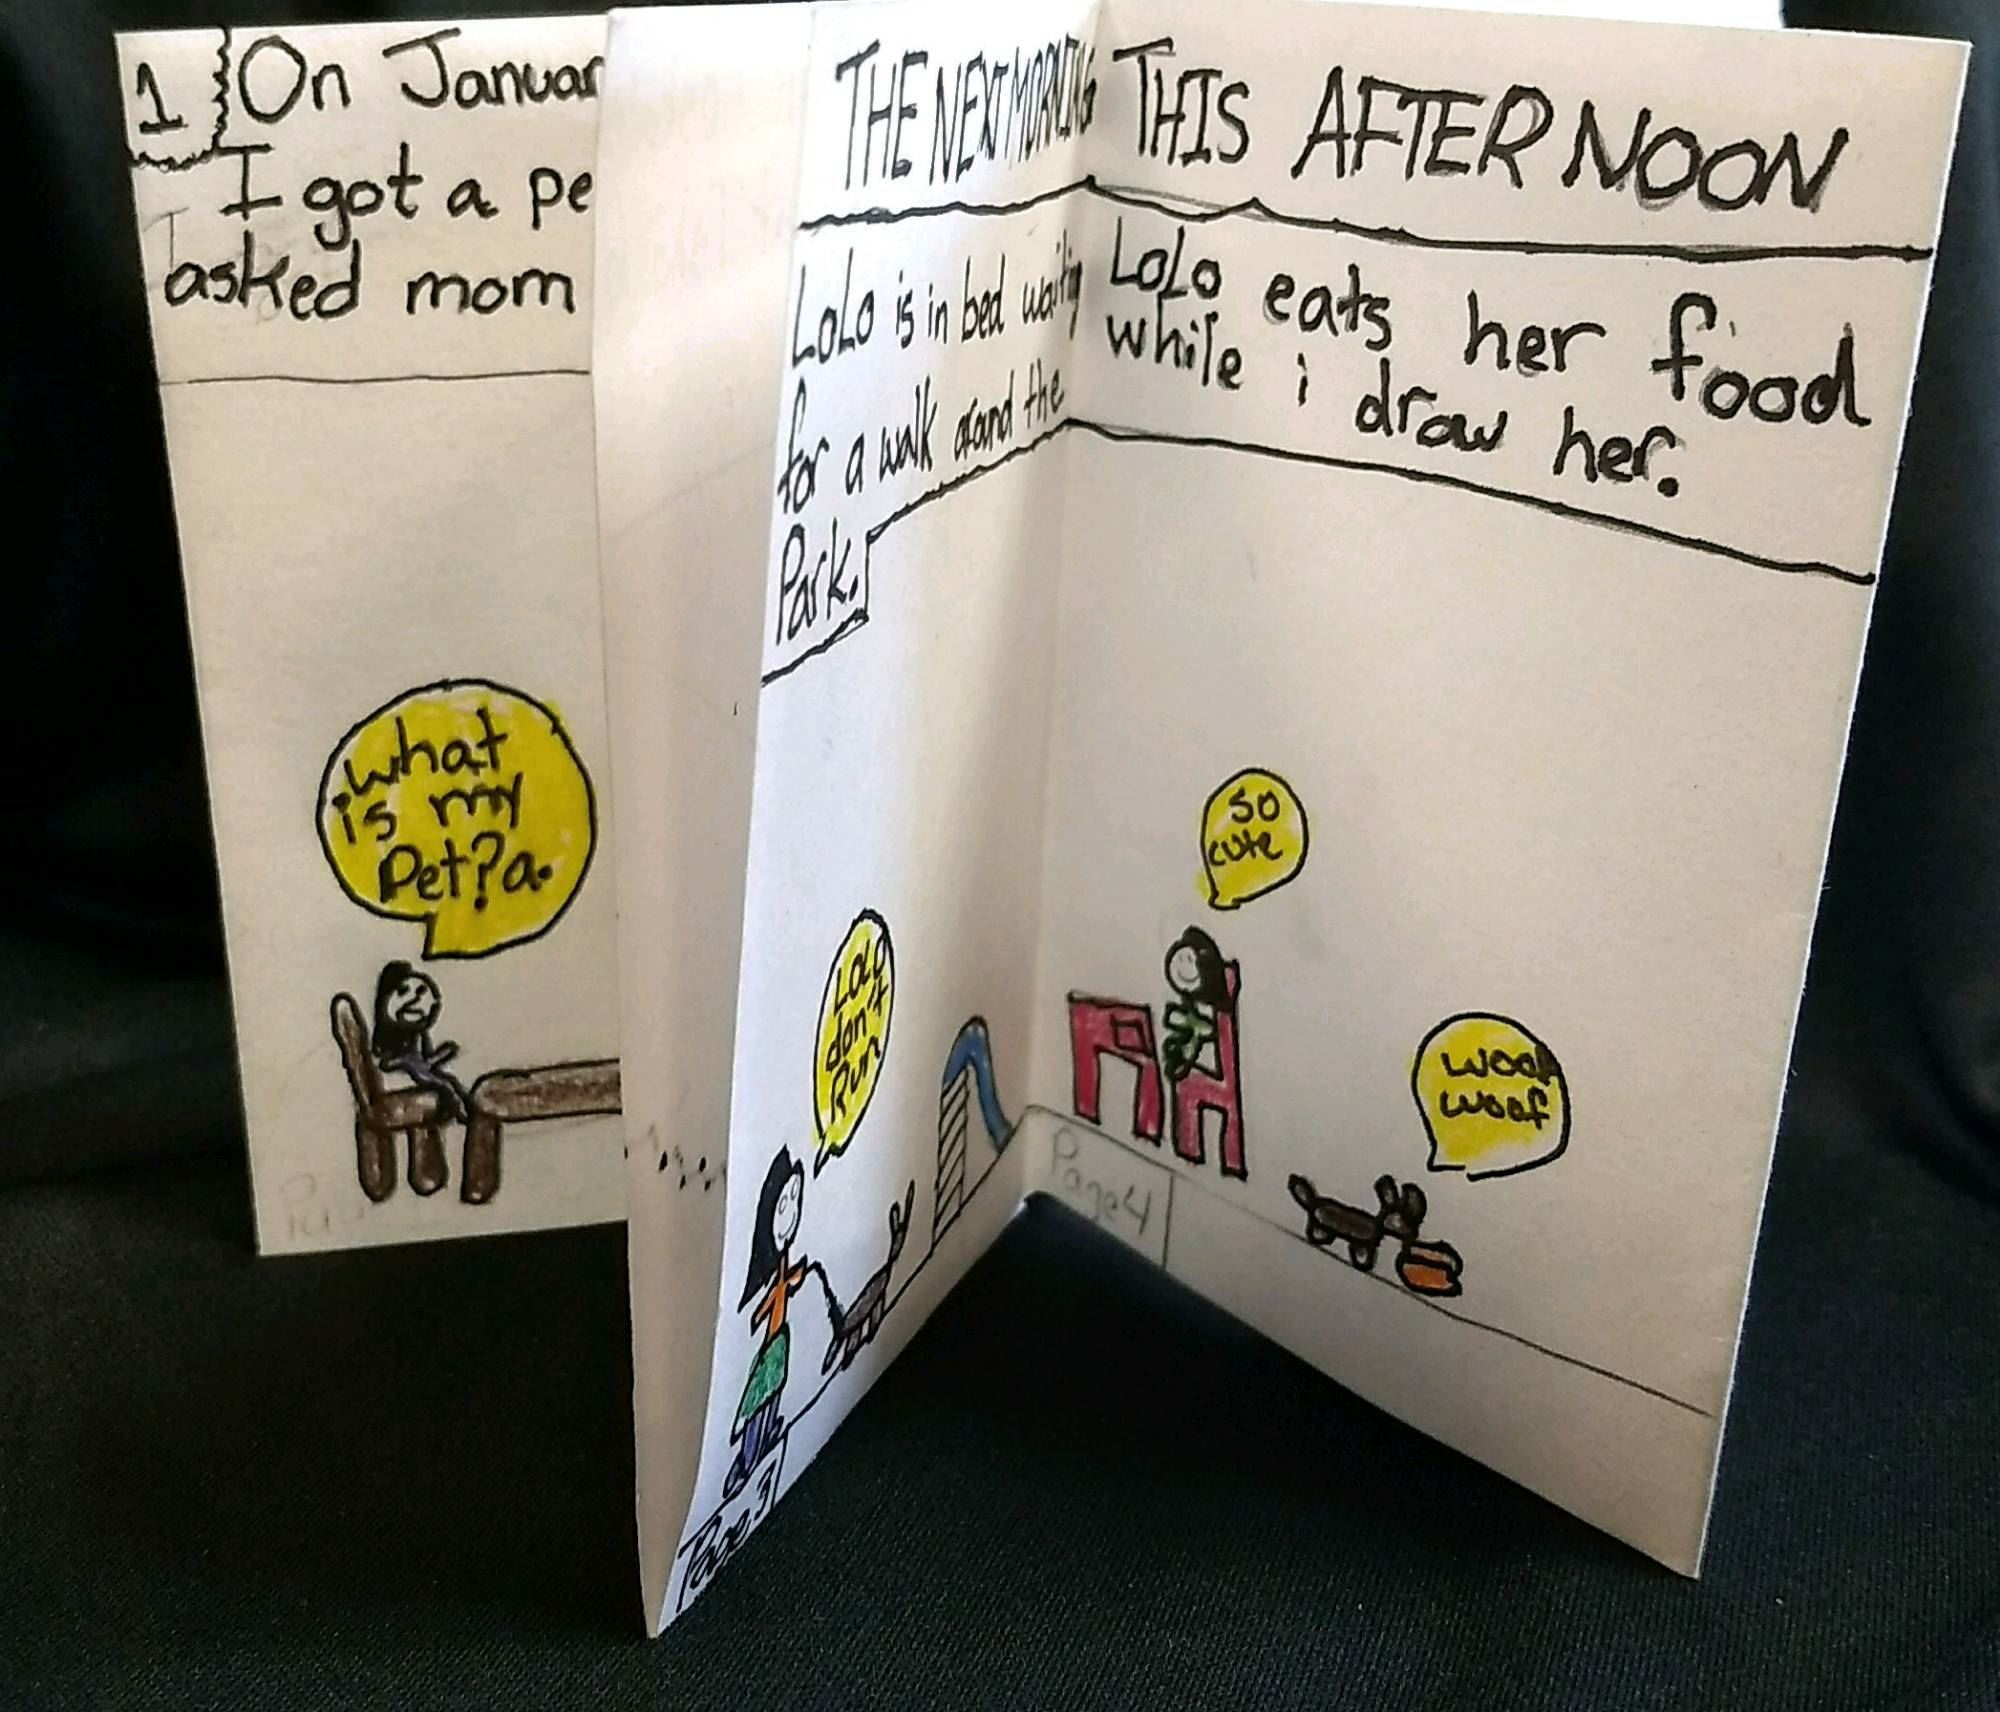 1
On Januar
I got a pe
asked mom
what
is my
Pet?a.
THE NEXT MORNING
LoLo is in bed waiting
for a walk around the
Park.
LOLO
don't
Run
Page 3
THIS AFTERNOON
LoLo eats her food
while i draw her.
so
cute
woof
woof
Page 4